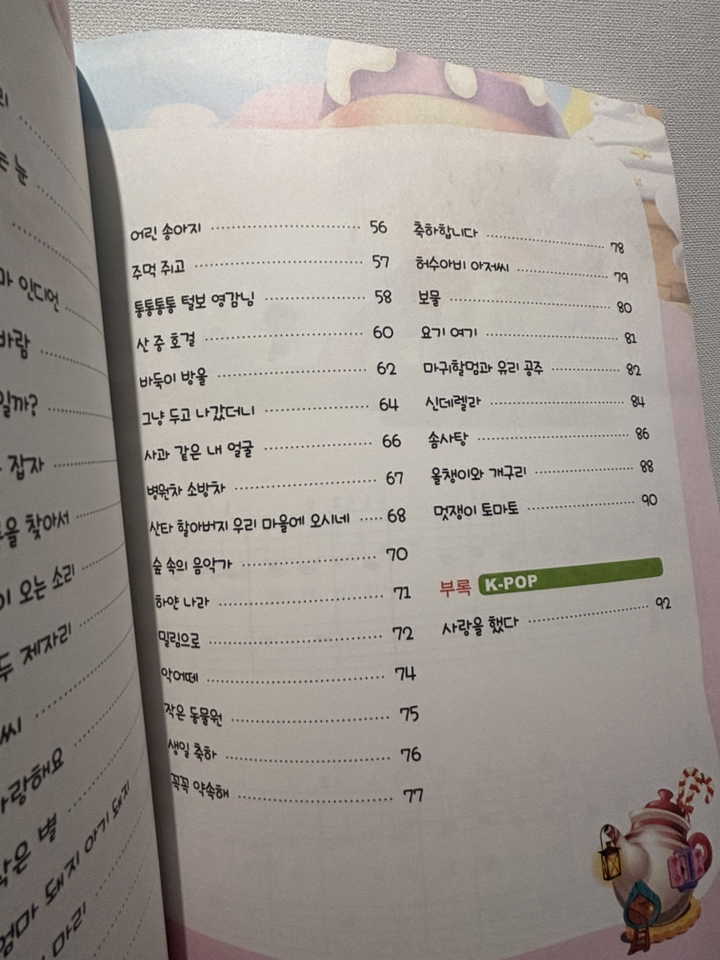 눈
인디언
바람
일까?
잡자
찾아서
오는 소리
제자리
사랑해요
작은 별
엄마 돼지 아기 돼지
마리
어린 송아지 56
주먹 쥐고 57
통통통통 털보 영감님 58
산 중 호걸 60
바둑이 방울 62
그냥 두고 나갔더니 64
사과 같은 내 얼굴 66
병원차 소방차 67
산타 할아버지 우리 마을에 오시네 68
숲 속의 음악가 70
하얀 나라 71
밀림으로 72
악어떼 74
작은 동물원 75
생일 축하 76
꼭꼭 약속해 77
축하합니다 78
허수아비 아저씨 79
보물 80
요기 여기 81
마귀할멈과 유리 공주 82
신데렐라 84
솜사탕 86
올챙이와 개구리 88
멋쟁이 토마토 90
부록 K-POP
사랑을 했다 92